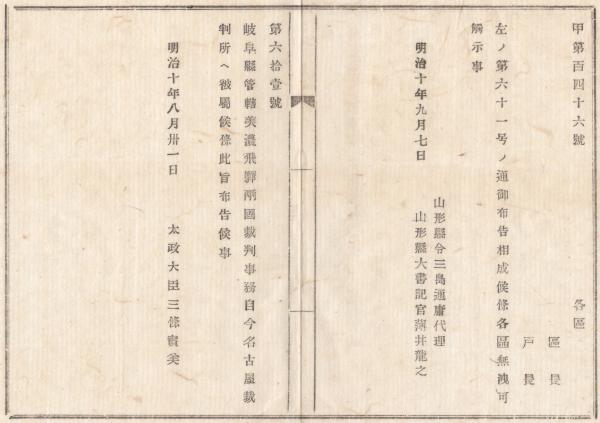 甲第百四十六號
各區
區長
戸長
左ノ第六十一号ノ通御布告相成候條各區無洩可
觸示事
明治十年九月七日
山形縣令三島通庸代理
山形縣大書記官薄井龍之
第六拾壹號
岐阜縣管轄美濃飛驒兩國裁判事務自今名古屋裁
判所ヘ被屬候條此旨布告候事
明治十年八月卅一日
太政大臣三條實美